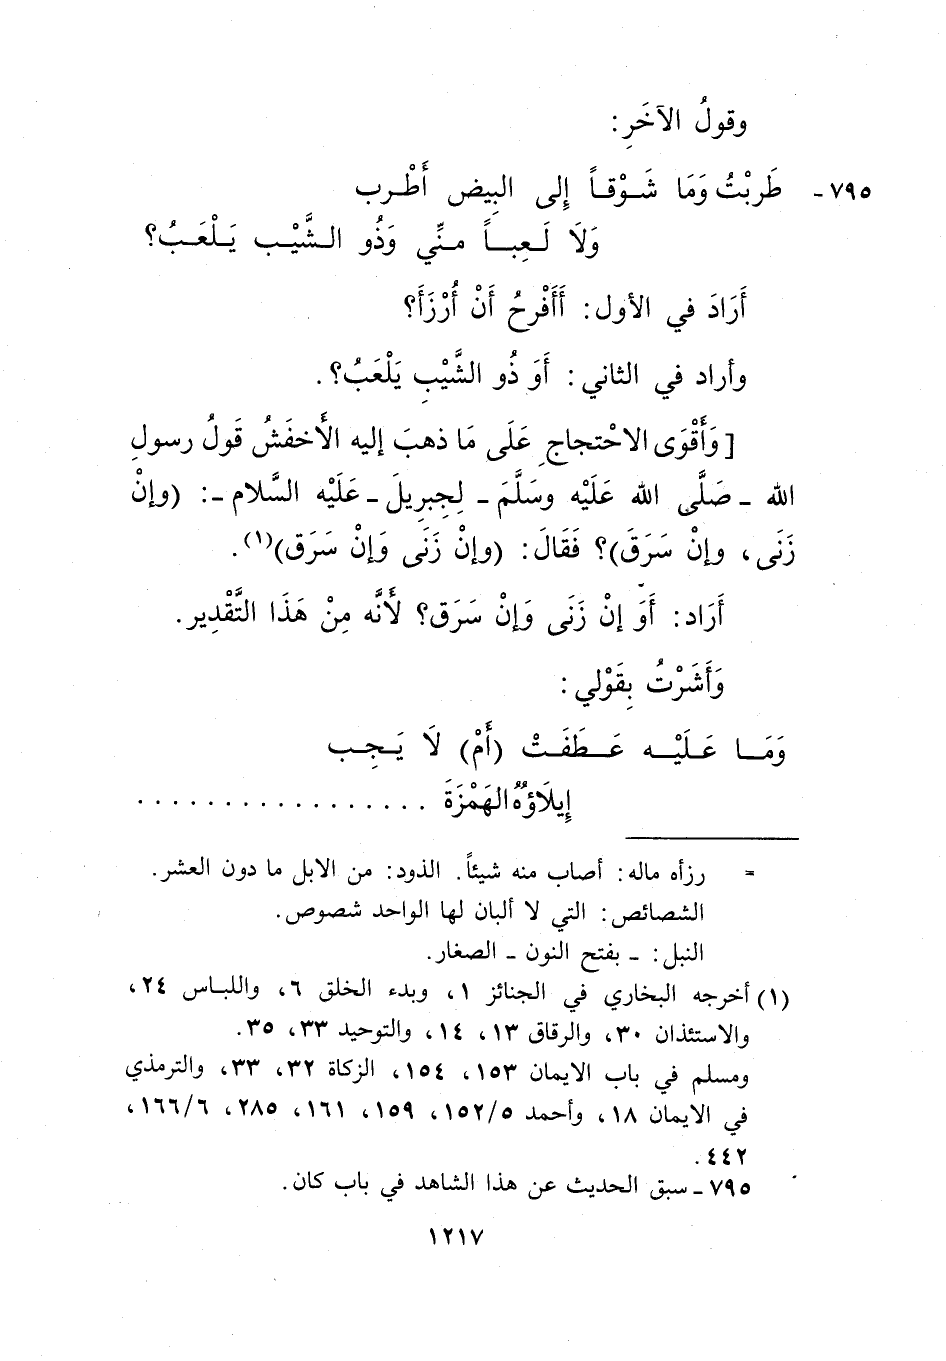 وقولُ الآخَرِ:
٧٩٥ - طَرِبْتُ وَمَا شَـوْقـاً إِلى البِيضِ أَطْـرب
وَلَا لَـعِبـاً مـنِّي وَذُو الـشَّيْـبِ يَـلْعَـبُ؟
أَرَادَ في الأول: أَأَفْرحُ أَنْ أُرْزَأَ؟
وأراد في الثاني: أَوَ ذُو الشَّيْبِ يَلْعَبُ؟.
[وَأَقْوَى الاحْتجاجِ عَلَى مَا ذهبَ إليه الأَخفَشُ قَولُ رسولِ
الله ـ صَلَّى الله عَلَيْه وسَلَّمَ ـ لِجِبرِيلَ ـ عَلَيْه السَّلام ـ: (وإنْ
زَنَى، وإنْ سَرَقَ)؟ فَقَالَ: (وإنْ زَنَى وَإنْ سَرَق)(١).
أَرَاد: أَوَ إنْ زَنَى وَإنْ سَرَق؟ لأَنَّه مِنْ هَذَا التَّقْدِير.
وَأَشَرْتُ بِقَوْلي:
وَمَـا عَـلَيْـه عَـطَفَـتْ (أَمْ) لَا يَـجِـب
إِيلَاؤهُ الهَمْزَةَ . . . . . . . . . . . . . . . . .
= رزأه ماله: أصاب منه شيئاً. الذود: من الابل ما دون العشر.
الشصائص: التي لا ألبان لها الواحد شصوص.
النبل: ـ بفتح النون ـ الصغار.
(١) أخرجه البخاري في الجنائز ١، وبدء الخلق ٦، واللباس ٢٤،
والاستئذان ٣٠، والرقاق ١٣، ١٤، والتوحيد ٣٣، ٣٥.
ومسلم في باب الايمان ١٥٣، ١٥٤، الزكاة ٣٢، ٣٣، والترمذي
في الايمان ١٨، وأحمد ١٥٢/٥، ١٥٩، ١٦١، ٢٨٥، ١٦٦/٦،
٤٤٢.
٧٩٥ ـ سبق الحديث عن هذا الشاهد في باب كان.
١٢١٧